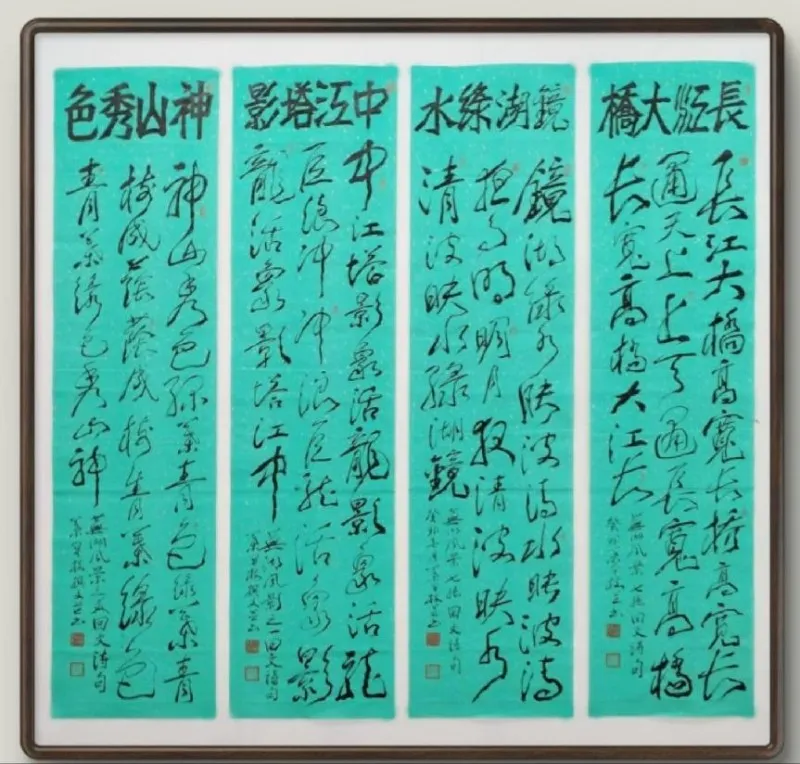 長江大橋
長江大橋高寬长橋高寬长
通天上上天通長寬高橋
长寬高橋大江长
蕪湖風景七絕回文詩句
鏡湖綠水
鏡湖綠水映波清水映波清
夜月明明月夜清波映水
清波映水綠湖鏡
蕪湖風景七絕回文詩句
中江塔影
中江塔影象活龍影象活龍
巨浪冲冲浪巨龍活象影
龍活象影塔江中
蕪湖風景之一回文詩句
神山秀色
神山秀色綠葉青色綠葉青
樹成蔭蔭成樹青葉綠色
青葉綠色秀山神
蕪湖風景之五回文詩句